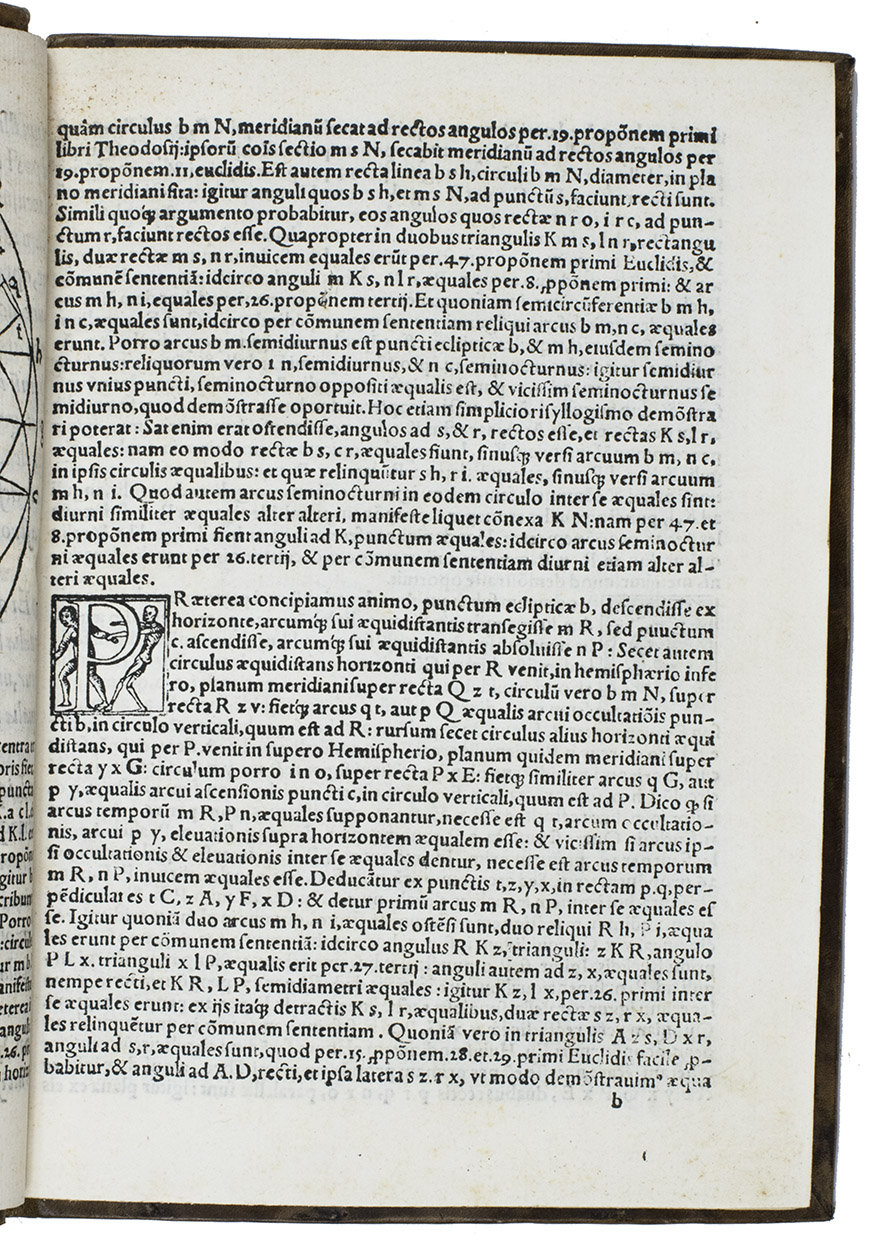 quâm circulus b m N, meridianũ secat ad rectos angulos per. 19. propõnem primi
libri Theodosij: ipsorũ cõis sectio m s N, secabit meridianũ ad rectos angulos per
19. propõnem. 11. euclidis. Est autem recta linea b s h, circuli b m N, diameter, in pla
no meridiani sita: igitur anguli quos b s h, et m s N, ad punctũ s, faciunt, recti sunt.
Simili quoqꝫ argumento probabitur, eos angulos quos rectæ n r o, i r c, ad pun-
ctum r, faciunt rectos esse. Quapropter in duobus triangulis K m s, l n r, rectangu
lis, duæ rectæ m s, n r, inuicem equales erũt per. 47. propõnem primi Euclidis, &
cõmunẽ sententiã: idcirco anguli m K s, n l r, æquales per. 8. ꝓpõnem primi: & ar
cus m h, n i, equales per, 26. propõnem tertij. Et quoniam semicircũferentiæ b m h,
i n c, æquales sunt, idcirco per cõmunem sententiam reliqui arcus b m, n c, æquales
erunt. Porro arcus b m. semidiurnus est puncti eclipticæ b, & m h, eiusdem semino
cturnus: reliquorum vero i n, semidiurnus, & n c, seminocturnus: igitur semidiur
nus vnius puncti, seminocturno oppositi æqualis est, & vicissim seminocturnus se
midiurno, quod demõstrasse oportuit. Hoc etiam simpliciori syllogismo demõstra
ri poterat: Sat enim erat ostendisse, angulos ad s, & r, rectos esse, et rectas K s, l r,
æquales: nam eo modo rectæ b s, c r, æquales fiunt, sinusqꝫ versi arcuum b m, n c,
in ipsis circulis æqualibus: et quæ relinquũtur s h, r i. æquales, sinusqꝫ versi arcuum
m h, n i. Quod autem arcus seminocturni in eodem circulo inter se æquales sint:
diurni similiter æquales alter alteri, manifeste liquet cõnexa K N: nam per 47. et
8. propõnem primi fient anguli ad K, punctum æquales: idcirco arcus seminoctur
ni æquales erunt per 26. tertij, & per cõmunem sententiam diurni etiam alter al-
teri æquales.
PRæterea concipiamus animo, punctum eclipticæ b, descendisse ex
horizonte, arcumqꝫ sui æquidistantis transegisse m R, sed puuctum
c. ascendisse, arcumqꝫ sui æquidistantis absoluisse n P: Secet autem
circulus æquidistans horizonti qui per R venit, in hemisphærio infe
ro, planum meridiani super recta Q z t, circulũ vero b m N, super
recta R z v: fietqꝫ arcus q t, aut p Q æqualis arcui occultatiõis pun-
cti b, in circulo verticali, quum est ad R: rursum secet circulus alius horizonti æqui
distans, qui per P. venit in supero Hemispherio, planum quidem meridiani super
recta y x G: circulum porro i n o, super recta P x E: fietqꝫ similiter arcus q G, aut
p y, æqualis arcui ascensionis puncti c, in circulo verticali, quum est ad P. Dico ꝙ si
arcus temporũ m R, P n, æquales supponantur, necesse est q t, arcum occultatio-
nis, arcui p y, eleuationis supra horizontem æqualem esse: & vicissim si arcus ip-
si occultationis & eleuationis inter se æquales dentur, necesse est arcus temporum
m R, n P, inuicem æquales esse. Deducãtur ex punctis t, z, y, x, in rectam p. q, per-
pẽdiculares t C, z A, y F, x D: & detur primũ arcus m R, n P, inter se æquales es
se. Igitur quoniã duo arcus m h, n i, æquales ostẽsi sunt, duo reliqui R h, P i, æqua
les erunt per cõmunem sententiã: idcirco angulus R K z, trianguli: z K R, angulo
P L x. trianguli x l P, æqualis erit per. 27. tertij: anguli autem ad z, x, æquales sunt,
nempe recti, et K R, L P, semidiametri æquales: igitur K z, l x, per. 26. primi inter
se æquales erunt: ex ijs itaqꝫ detractis K s, l r, æqualibus, duæ rectæ s z, r x, æqua-
les relinquẽtur per cõmunem sententiam. Quoniã vero in triangulis A z s, D x r,
anguli ad s, r, æquales sunt, quod per. 15. ꝓpõnem. 28. et. 29. primi Euclidis facile ꝓ-
babitur, & anguli ad A. D, recti, et ipsa latera s z. r x, vt modo demõstrauimꝰ æqua
b